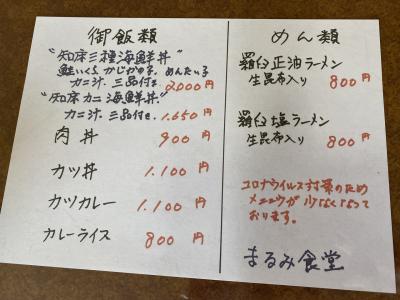 御飯類
"知床三種海鮮丼"
鮭いくら かじかの子、めんたい子
カニ汁、三品付き 2000円
"知床カニ海鮮丼"
カニ汁、三品付き、1.650円
肉丼 900円
カツ丼 1.100円
カツカレー 1.100円
カレーライス 800円
めん類
羅臼正油ラーメン
生昆布入り 800円
羅臼塩ラーメン
生昆布入り 800円
コロナウイルス対策のため
メニュウが少なくなって
おります。
まるみ食堂